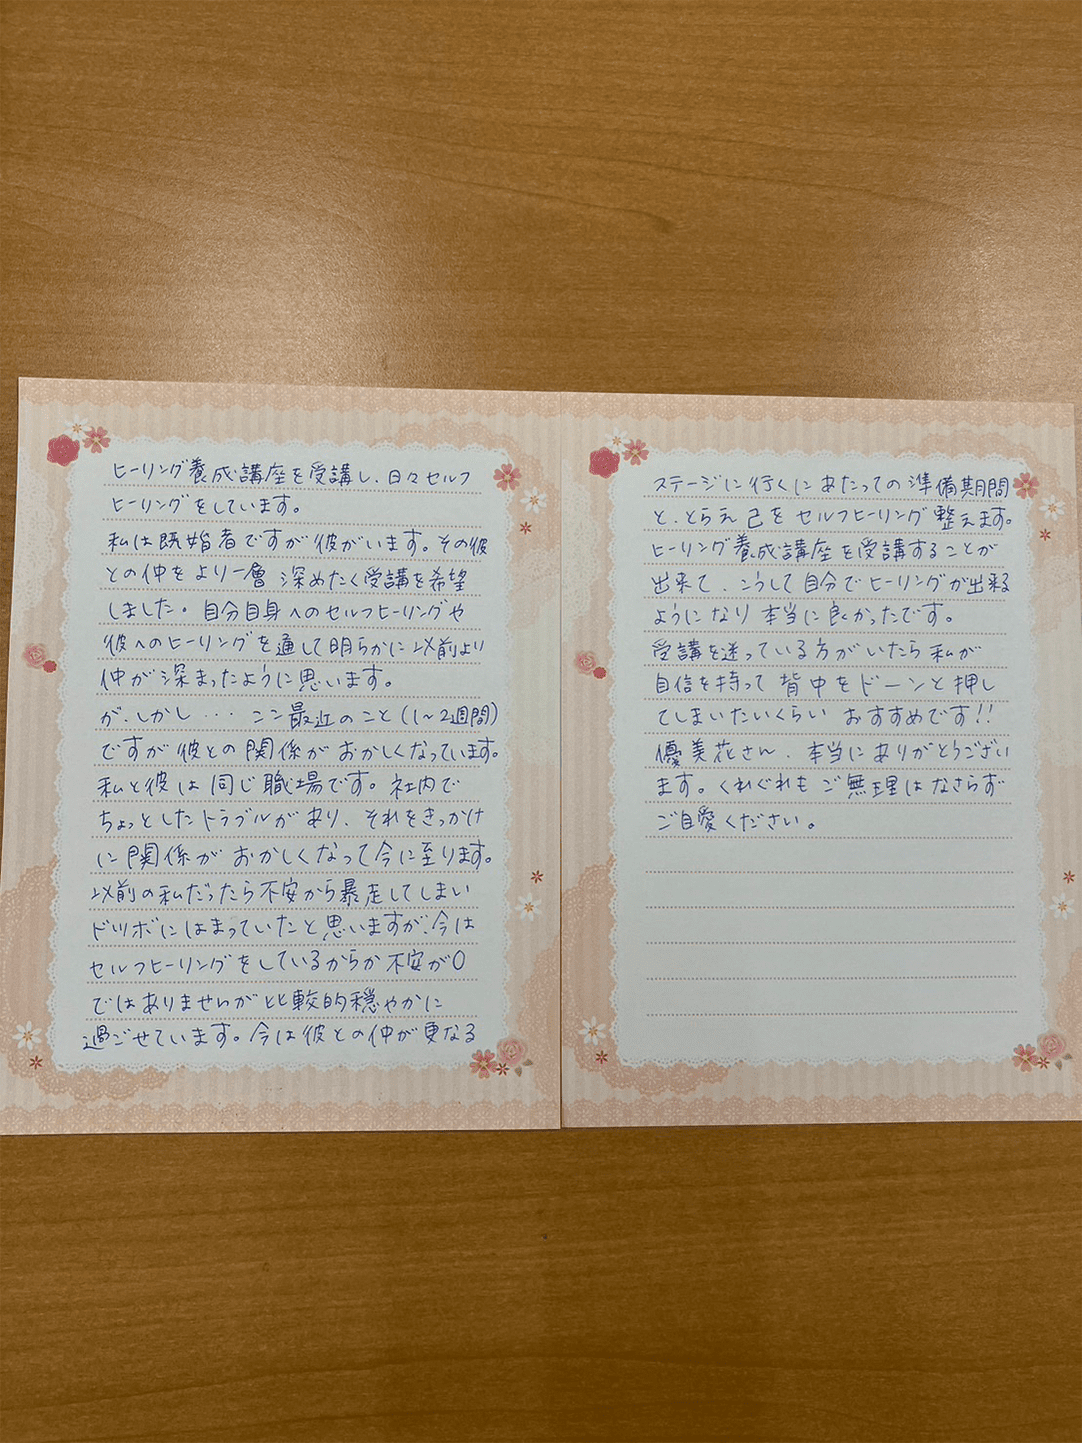 ヒーリング養成講座を受講し、日々セルフ
ヒーリングをしています。
私は既婚者ですが彼がいます。その彼
との仲をより一層 深めたく受講を希望
しました。自分自身へのセルフヒーリングや
彼へのヒーリングを通して明らかに以前より
仲が深まったように思います。
が、しかし・・・ここ最近のこと(1〜2週間)
ですが彼との関係がおかしくなっています。
私と彼は同じ職場です。社内で
ちょっとしたトラブルがあり、それをきっかけ
に関係がおかしくなって今に至ります。
以前の私だったら不安から暴走してしまい
ドツボにはまっていたと思いますが、今は
セルフヒーリングをしているからか不安が0
ではありませんが比較的穏やかに
過ごせています。今は彼との仲が更なる
ステージに行くにあたっての準備期間
と、とらえ己をセルフヒーリング整えます。
ヒーリング養成講座を受講することが
出来て、こうして自分でヒーリングが出来る
ようになり本当に良かったです。
受講を迷っている方がいたら私が
自信を持って背中をドーンと押し
てしまいたいくらい おすすめです!!
優美花さん、本当にありがとうござい
ます。くれぐれもご無理はなさらず
ご自愛ください。